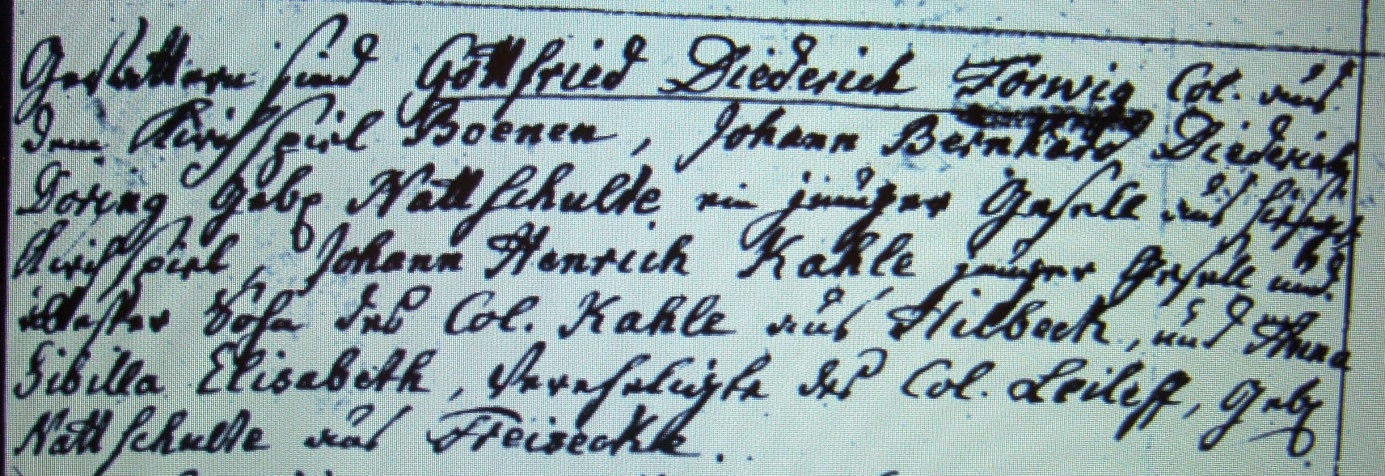 Gevattern sind Gottfried Diederich Forwig Col. aus
dem Kirchspiel Boenen, Johann Bernhard Diederich
Doring geb. Nattschulte ein junger Gesell aus
Kirchspiel, Johann Henrich Kahle junger Gesell und
ältester Sohn des Col. Kahle aus Hilbeck, und Anna
Sibilla Elisabeth, Vereheligte des Col. Leileff, geb.
Nattschulte aus Freiseckle.